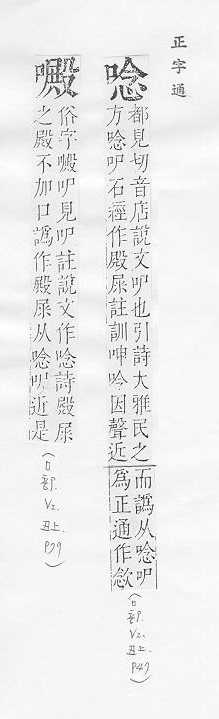 正字通
唸
都見切音店說文㕧也引詩大雅民之
方唸㕧石經作殿屎註訓呻吟因聲近
而譌从唸㕧
為正通作
(口部. V2. 丑上. P47)
俗字 㕧見㕧註說文作唸詩殿屎
之殿不加口譌作殿屎从唸㕧近是
(口部. V2. 丑上. P79)